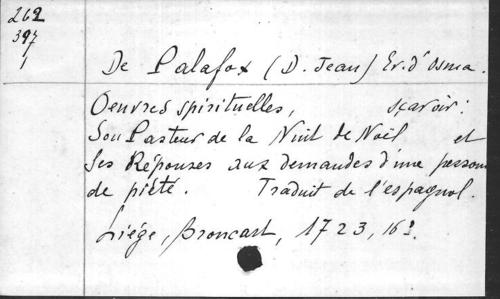 262
397
1
De Palafox (D. Jean) Ev. d'Osma.
Oeuvres spirituelles, sçavoir:
Son Pasteur de la Nuit de Noël et
Ses Réponses aux demandes d'une personne
de piété. Traduit de l'espagnol.
Liége, Broncart, 1723, 16º.